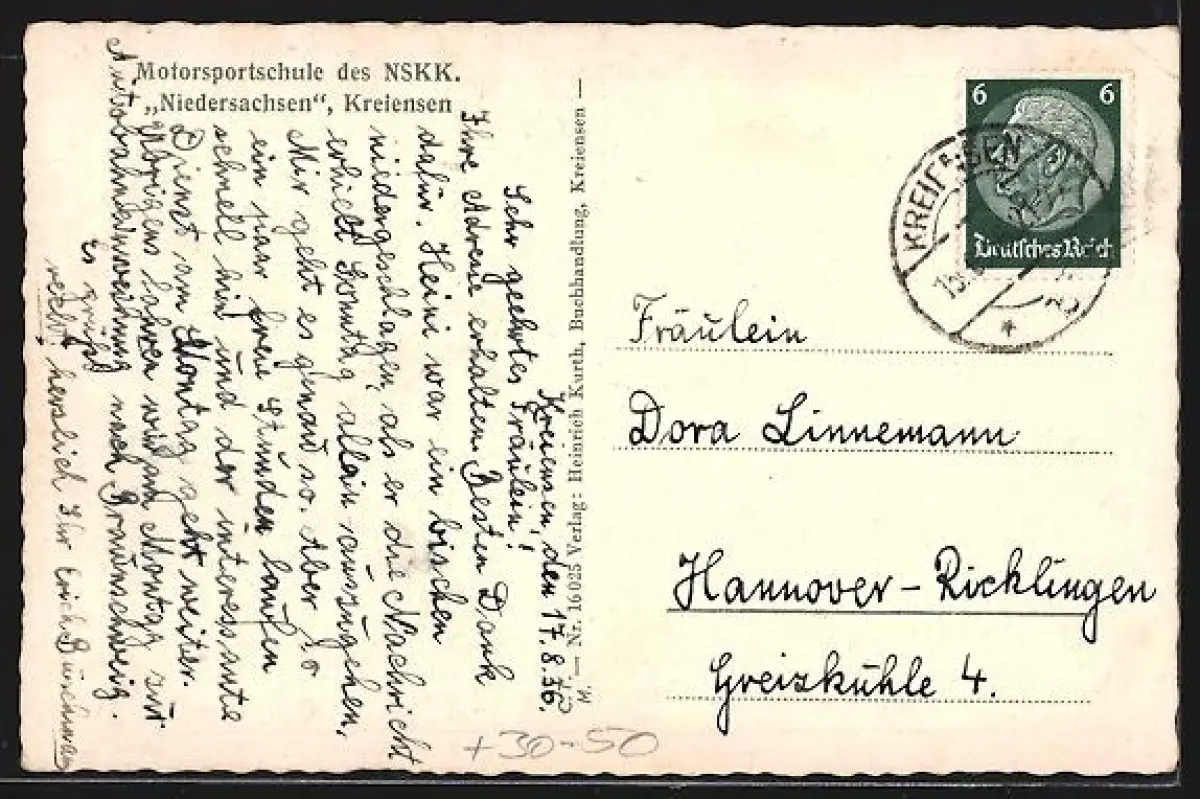 Motorsportschule des NSKK.
„Niedersachsen", Kreiensen
Kreiensen, den 17.8.36.
Sehr geehrtes Fräulein!
Ihre Adresse erhalten. Besten Dank
dafür. Heini war ein bischen
niedergeschlagen, als er die Nachricht
erhielt Sonntag allein auszugehen.
Mir geht es genau so. Aber so
ein paar freie Stunden laufen
schnell hin und der interessante
Dienst am Montag geht weiter.
Übrigens fahren wir am Montag zur
Autobahneinweihung nach Braunschweig.
Es grüßt
recht herzlich Ihr Erich
W. — Nr. 16025 Verlag: Heinrich Kurth, Buchhandlung, Kreiensen —
6 6
Deutsches Reich
KREIENSEN
Fräulein
Dora Linnemann
Hannover-Ricklingen
Greizkühle 4.
+30-50